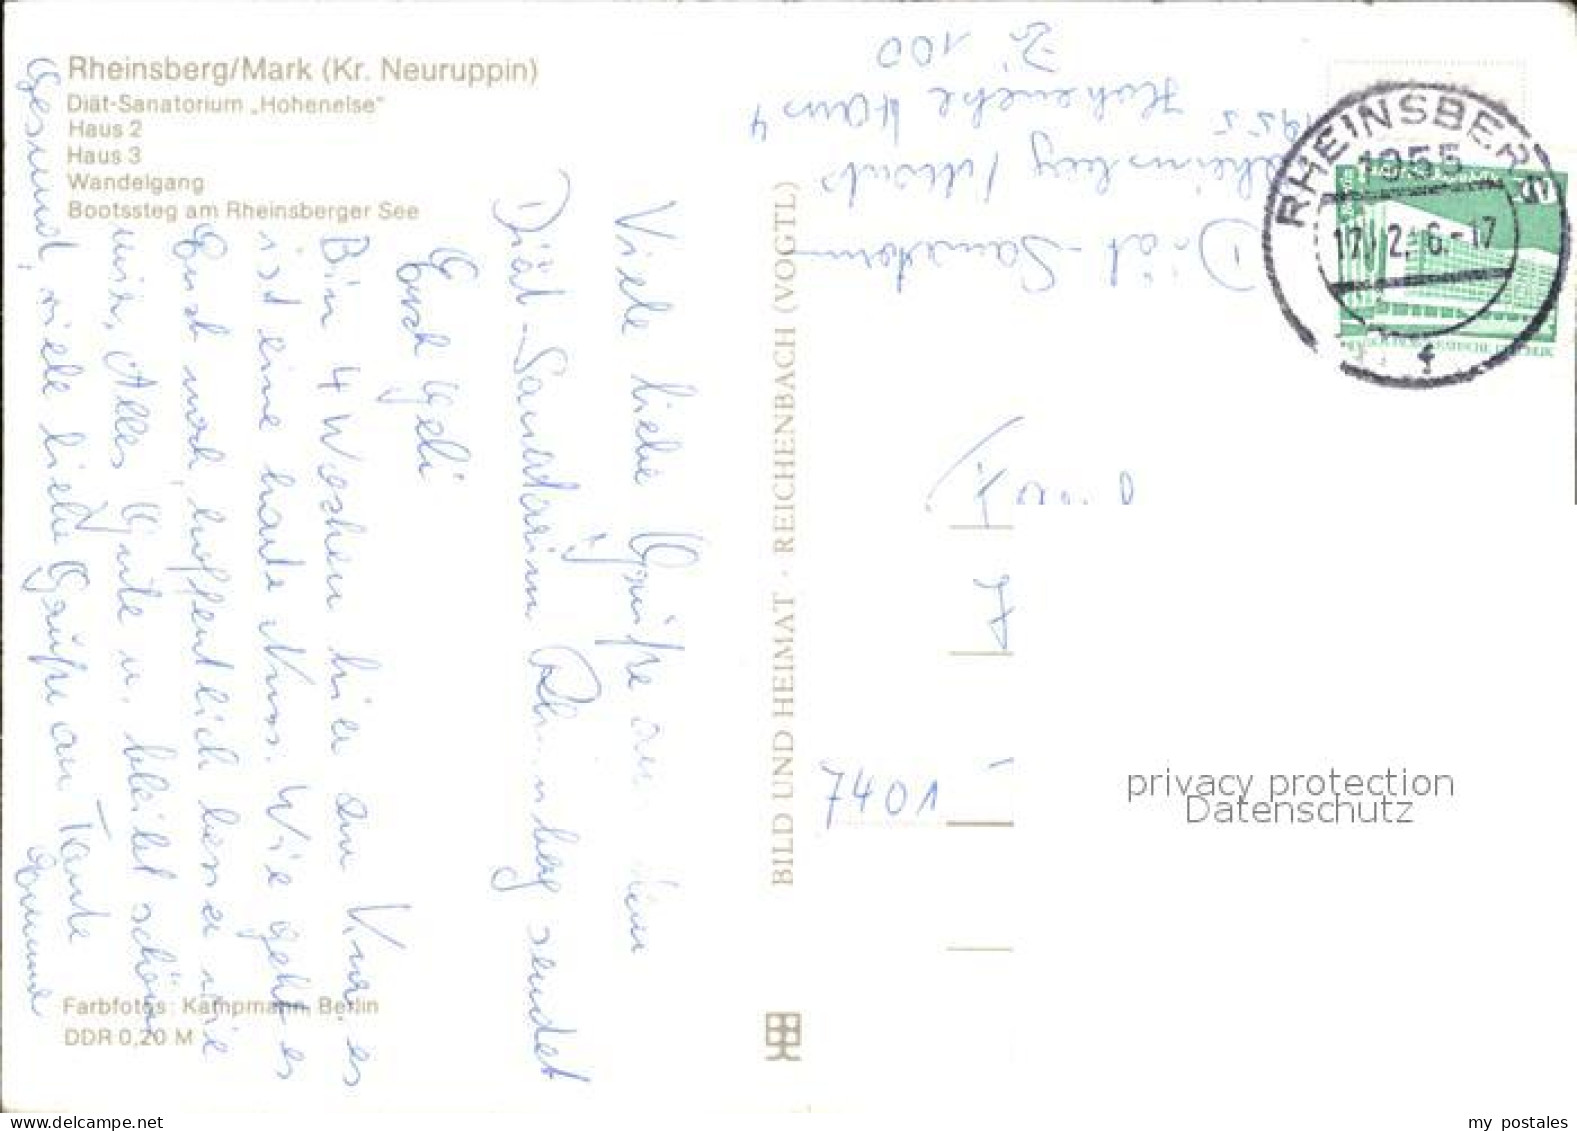 Rheinsberg/Mark (Kr. Neuruppin)
Diät-Sanatorium „Hohenelse"
Haus 2
Haus 3
Wandelgang
Bootssteg am Rheinsberger See
Viele liebe Grüße aus dem
Diät-Sanatorium Rheinsberg sendet
Euch Geli
Bin 4 Wochen hier zur Kur, es
ist eine harte Nuss. Wie geht es
Euch noch, hoffentlich besser wie
mir, Alles Gute u. bleibt schön
Gesund, viele liebe Grüße an Tante
Farbfotos: Kampmann, Berlin
DDR 0,20 M
BILD UND HEIMAT · REICHENBACH (VOGTL)
Diät-Sanatorium
Rheinsberg
1955 Hohenelse Haus 4
Zi 100
RHEINSBERG
1955
17. 2. 6.-17
f
10
7401
privacy protection
Datenschutz
my postales